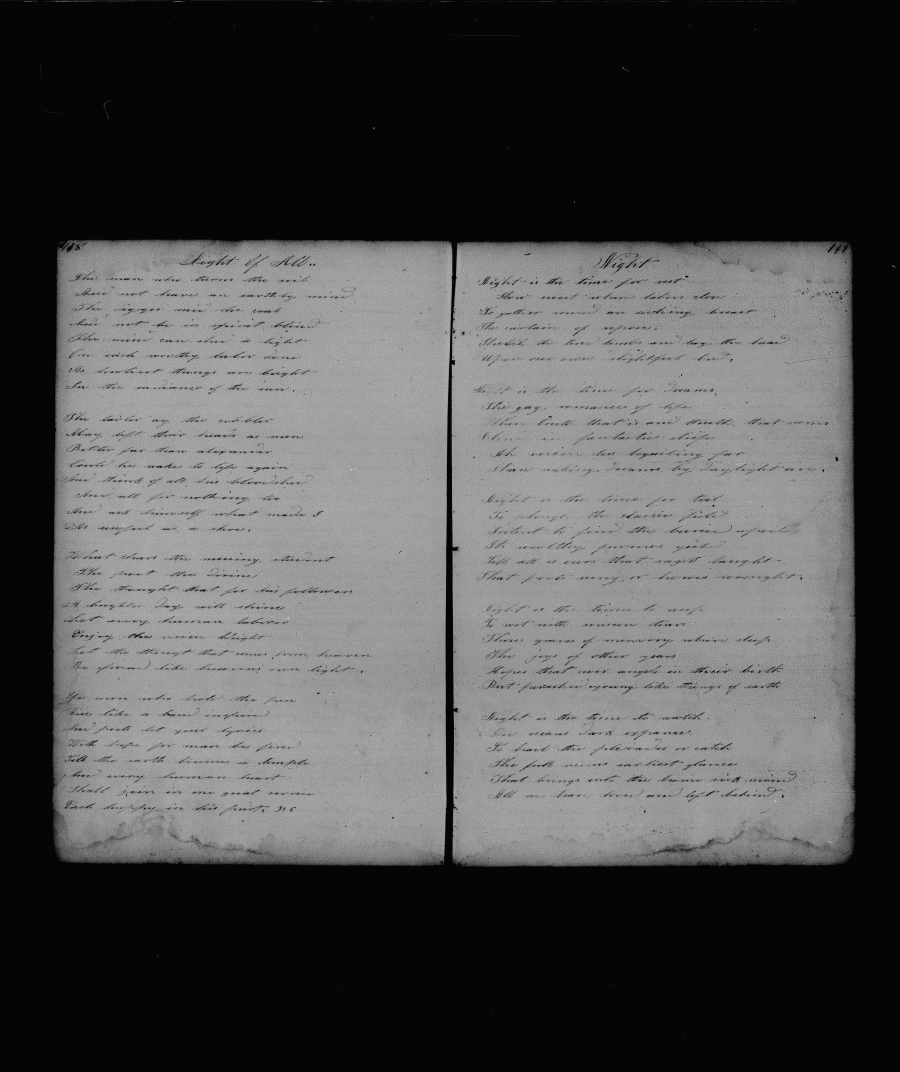 118
Light Of All..
The man who turns the soil
Need not have an earthly mind
The digger mid the coal
Need not be in spirit blind
The mind can shed a light
On each worthy labor done
As lowliest things are bright
In the radiance of the sun.
The tailor ay the cobbler
May lift their heads as men
Better far than alexander
Could he wake to life again
And think of all his bloodshed
And all for nothing too
And ask himself what made I
As useful as a shoe.
What cheers the musing student
The poet the divine
The thought that for his followers
A brighter day will shine
Let every human laborer
Enjoy the vision bright
Let the thought that comes from heaven
Be spread like heavens own light.
Ye men who hold the pen
Rise like a band inspired
And poets let your lyrics
With hope for man be fired
Till the earth becomes a temple
And every human heart
Shall join in one great service
Each happy in his part.
Night
Night is the time for rest
How sweet when labors close
To gather round an aching breast
The curtain of repose.
Stretch the tired limbs and lay the head
Upon our own delightful bed.
Night is the time for dreams
The gay romance of life
When truth that is and truth that seems
Blend in fantastic strife
Ah visions less beguiling far
Than waking dreams by daylight are.
Night is the time for toil
To plough the classic field
Intent to find the buried spoil
Its wealthy furrows yield
Till all is ours that sages taught
That poets sang or heroes wrought.
Night is the time to weep
To wet with unseen tears
Those graves of memory where sleep
The joys of other years
Hopes that were angels in their birth
But perished young like things of earth
Night is the time to watch.
On oceans dark expanse
To hail the pleiades or catch
The full moons earliest glance
That brings unto the home sick mind
All we have loved and left behind.